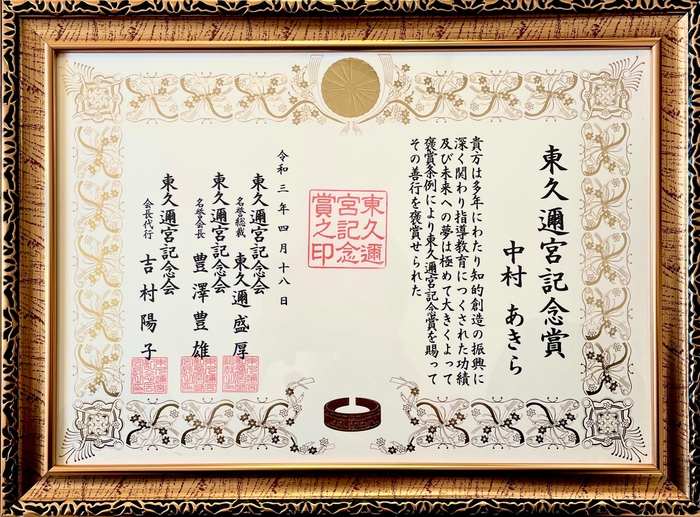 東久邇宮記念賞
中村 あきら
貴方は多年にわたり知的創造の振興に
深く関わり指導教育につくされた功績
及び未来への夢は極めて大きくよって
褒賞条例により東久邇宮記念賞を賜って
その善行を褒賞せられた
東久邇
宮記念
賞之印
令和三年四月十八日
東久邇宮記念会
名誉総裁 東久邇 盛厚
東久邇宮記念会
名誉会長 豊澤豊雄
東久邇宮記念会
会長代行 吉村陽子